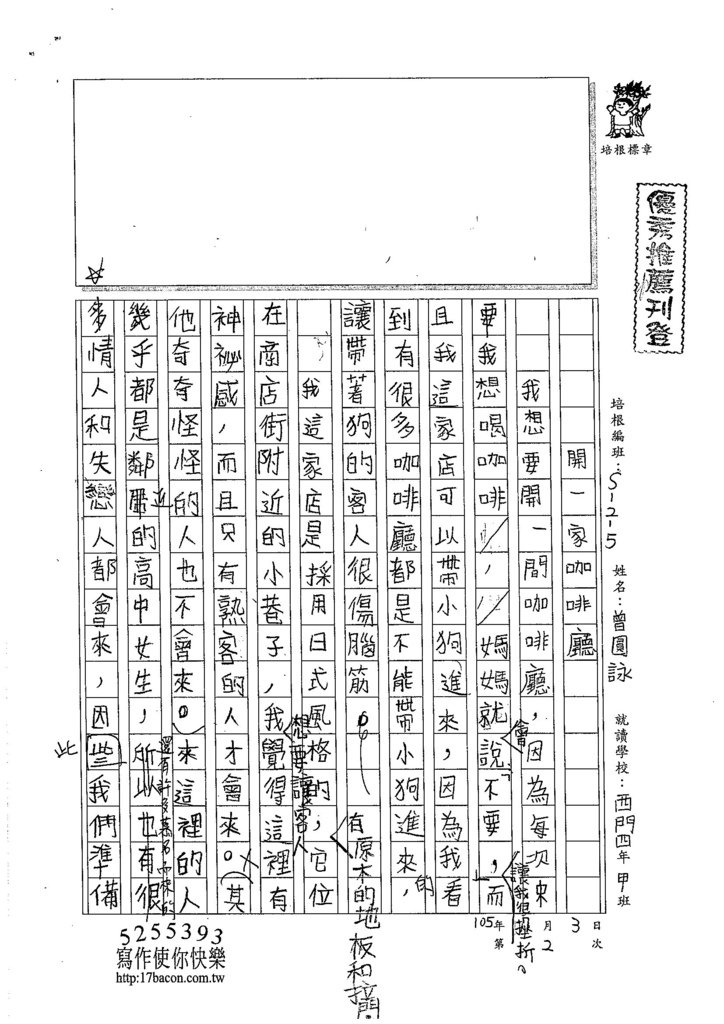 培根標章
優秀推薦刊登
培根編班：S-2-5　姓名：曾圓詠　就讀學校：西門四年甲班
105年　月2　3日
第　次
開一家咖啡廳
我想要開一間咖啡廳，因為每次
要我想喝咖啡，媽媽就會說不要，而
讓我很挫折。
且我這家店可以帶小狗進來，因為我看
到有很多咖啡廳都是不能帶小狗進來，的
讓帶著狗的客人很傷腦筋。
我這家店是採用日式風格的，它位
有原木的地板和
想要讓客人
在商店街附近的小巷子，我覺得這裡有
神祕感，而且只有熟客的人才會來。其
他奇奇怪怪的人也不會來。來這裡的人
幾乎都是鄰近的高中女生，所以也有很
還有許多慕名而來的
多情人和失戀人都會來，因此些我們準備
5255393
寫作使你快樂
http:17bacon.com.tw